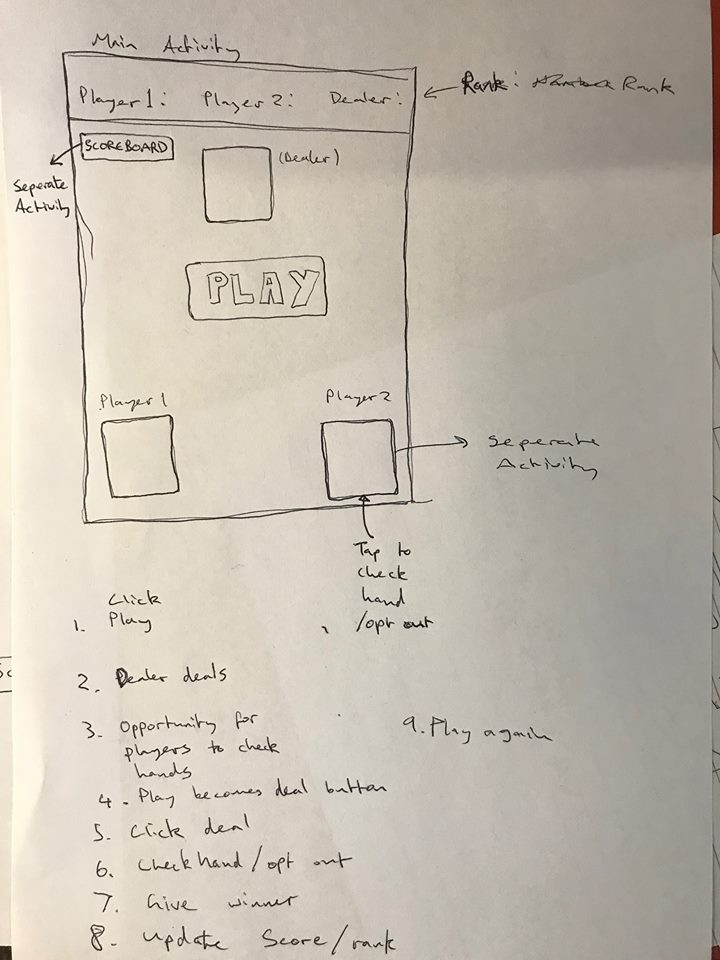 Main Activity
Player 1: Player 2: Dealer:
Rank: Rank
SCOREBOARD
(Dealer)
Seperate
Activity
PLAY
Player 1
Player 2
Seperate
Activity
Tap to
check
hand
/opt out
1. Click
Play
2. Dealer deals
3. Opportunity for
players to check
hands
4. Play becomes deal button
5. Click deal
6. Check hand / opt out
7. Give winner
8. Update Score/rank
9. Play again